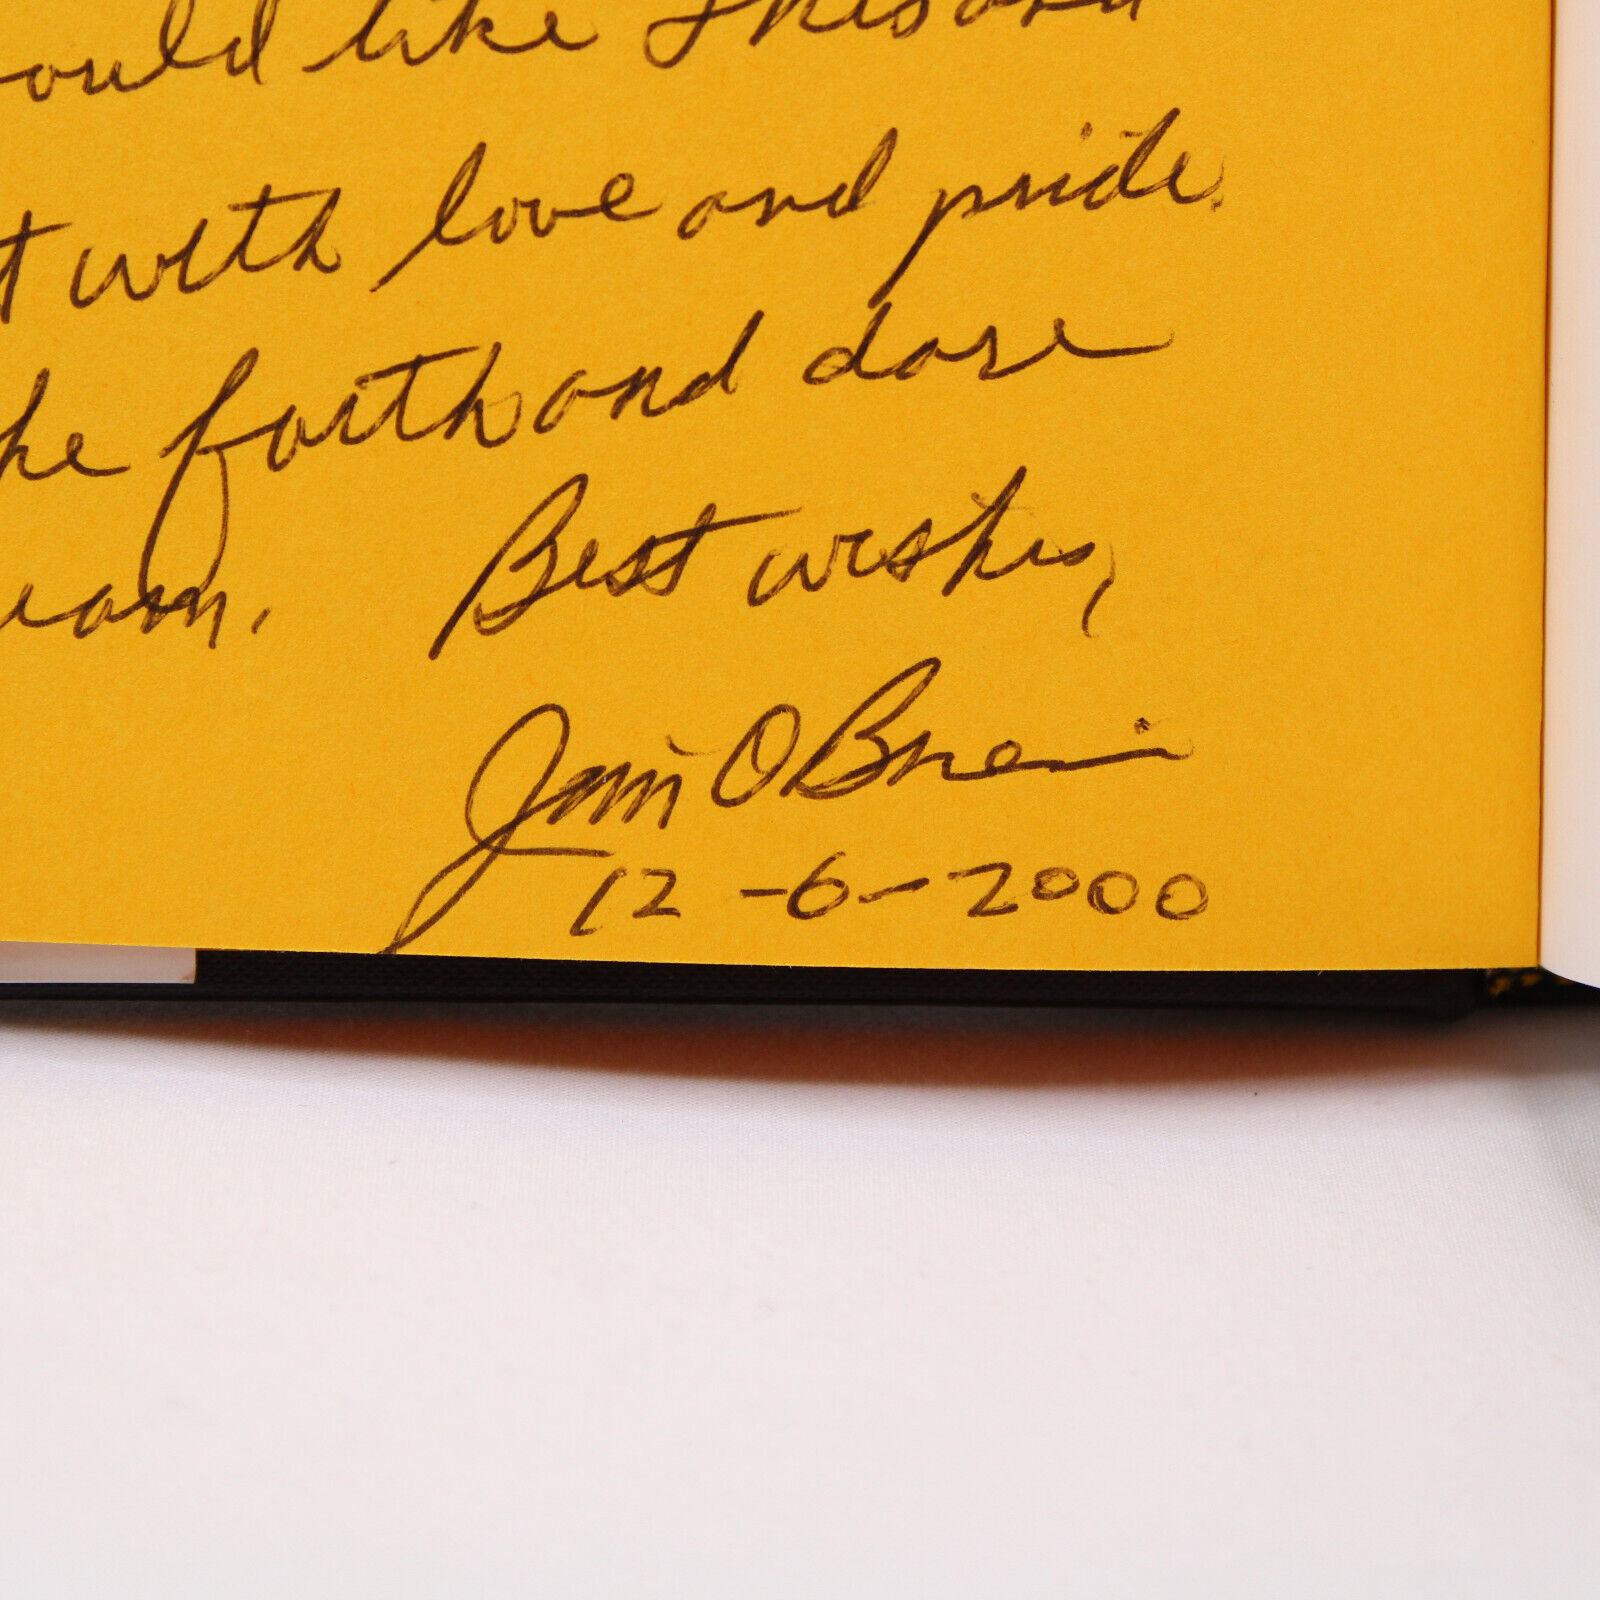 ould like this and
t with love and pride.
he faith and dare
eam. Best wishes,
Jim O'Brien
12-6-2000